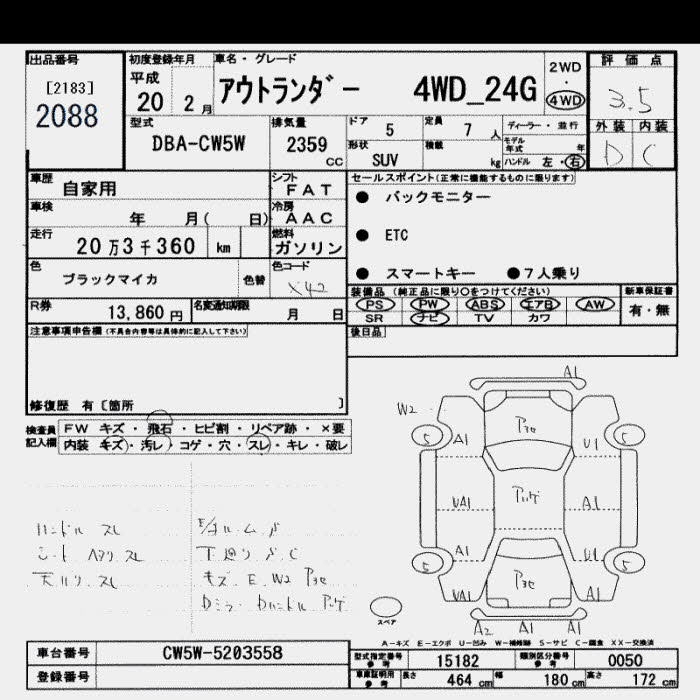 出品番号
[2183]
2088
初度登録年月
平成
20 2月
車名・グレード
アウトランダー 4WD_24G
2WD
・
4WD
評価点
3.5
外装 内装
D C
型式
DBA-CW5W
排気量
2359
CC
ドア
5
定員
7 人
形状
SUV
積載
kg
ディーラー・並行
モデル年式 年
ハンドル 左・右
車歴
自家用
シフト
FAT
車検
年 月( 日)
冷房
AAC
走行
20万3千360 km
燃料
ガソリン
色
ブラックマイカ
色替
色コード
X42
R券
13,860 円
名変通知期限
月 日
セールスポイント(正常に機能するものに限ります)
● バックモニター
● ETC
● スマートキー ●7人乗り
装備品(純正品に限り○をつけてください)
PS PW ABS エアB AW
SR ナビ TV カワ
新車保証書
有・無
後日品
注意事項申告欄(不具合内容等は具体的に記入して下さい)
修復歴 有〔箇所 〕
検査員
記入欄
FW キズ・飛石・ヒビ割・リペア跡・×要
内装 キズ・汚レ・コゲ・穴・スレ・キレ・破レ
ハンドル スレ
シート ヘタリ スレ
天ハリ スレ
下廻り サ C
キズ E W2 アセ
Dミラー Dハンドル
A1
W2
アセ
5
A1
U1
5
UA1
A1
A1
U1
5
5
アセ
UA1
A1
スペア
A2 A1 A1
A-キズ E-エクボ U-凹み W-補修跡 S-サビ C-腐食 XX-交換済
車台番号
CW5W-5203558
登録番号
型式指定番号
参考
15182
類別区分番号
参考
0050
車庫証明用
参考
長さ
464 cm
幅
180 cm
高さ
172 cm